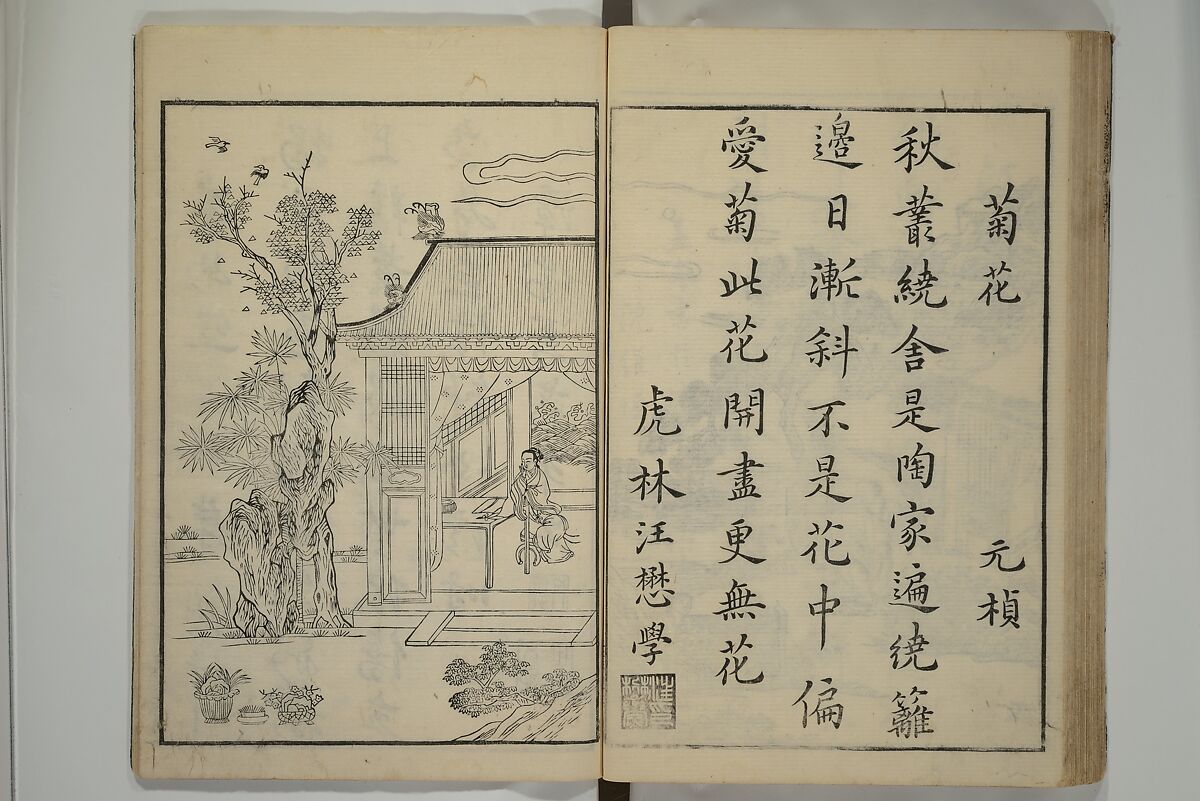 菊花 元楨
秋叢繞舍是陶家遍繞籬
邉日漸斜不是花中偏
愛菊此花開盡更無花
虎林汪懋學